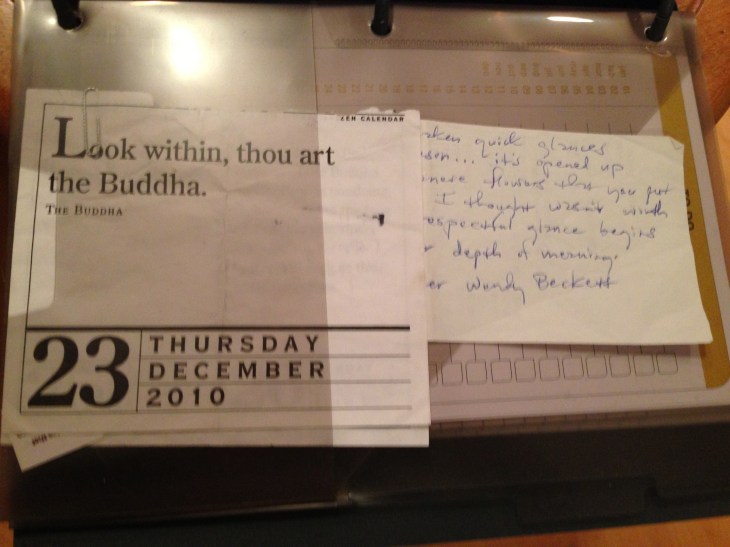 ZEN CALENDAR
Look within, thou art
the Buddha.
THE BUDDHA
23
THURSDAY
DECEMBER
2010
quick glances
it's opened up
flowers that you put
I thought wasn't worth
glance begins
depth of meaning.
Wendy Beckett